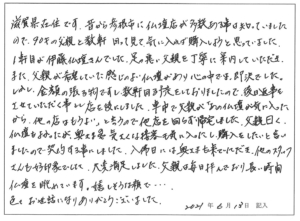 滋賀県在住です。昔から彦根市に仏壇店が多数ある事は知っていました
ので、90才の父親と数軒回って見て気に入れば購入しようと思っていました。
1軒目が伊藤仏壇さんでした。足の悪い父親も丁寧に案内していただき、
また、父親が希望していた感じのよい仏壇がありほぼ心の中では即決でした。
しかし、金額の張る物ですし数軒目お決めをしておりましたので、後日返事を
させていただく事にし店を後にしました。車中で父親が「あの仏壇が気に入った
から、他の店はもうよい」と言うので他店を回らず帰宅しました。父親曰く、
仏壇もよかったが、奥さま 接客も気に入ったし購入をしたいと言い
ましたので契約する事にしました。入佛日には奥さまも来ていただき、他のスタッフ
さんも好印象でした。大変満足しました。父親は毎日拝んでおり、長い時間
仏壇を眺めています。嬉しそうな様で・・・
色々お世話になりありがとうございました。
2021年6月13日 記入